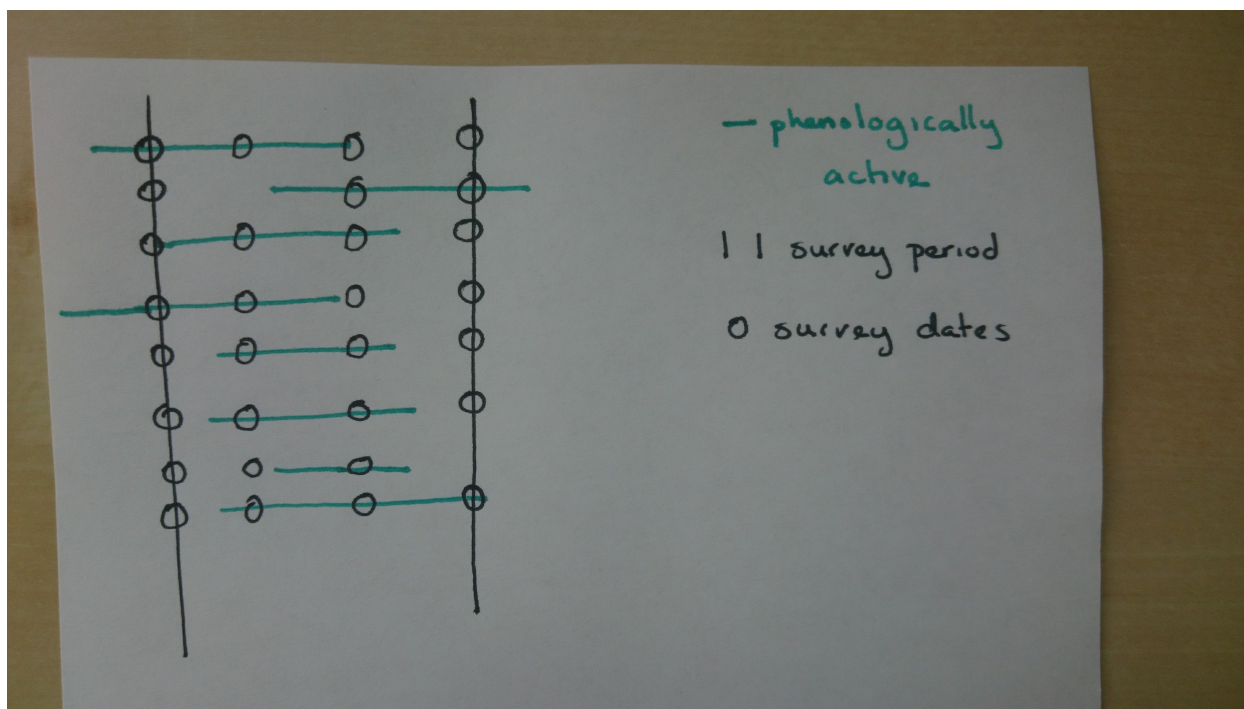 — phenologically
active
| | survey period
o survey dates